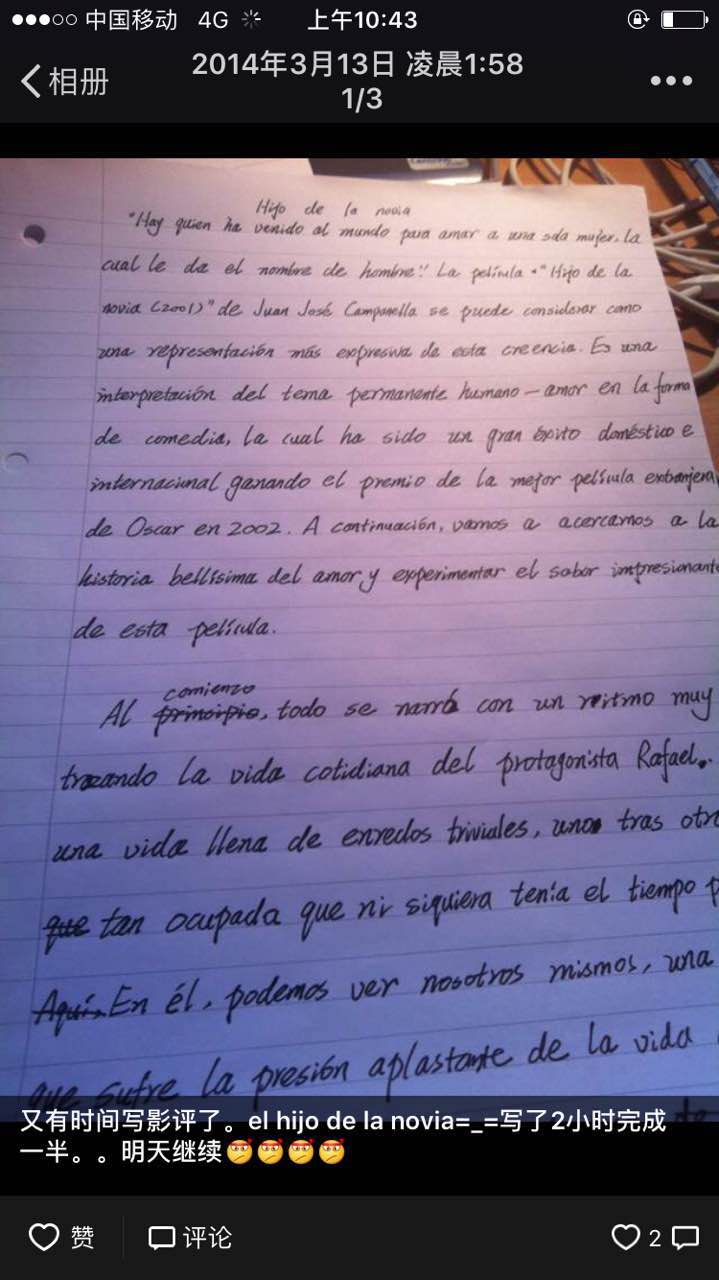 中国移动 4G 上午10:43
相册
2014年3月13日 凌晨1:58
1/3
Hijo de la novia
"Hay quien ha venido al mundo para amar a una sola mujer, la
cual le da el nombre de hombre!" La película "Hijo de la
novia (2001)" de Juan José Campanella se puede considerar como
una representación más expresiva de esta creencia. Es una
interpretación del tema permanente humano — amor en la forma
de comedia, la cual ha sido un gran éxito doméstico e
internacional ganando el premio de la mejor película extranjera
de Oscar en 2002. A continuación, vamos a acercarnos a la
historia bellísima del amor y experimentar el sabor impresionant
de esta película.
comienzo
Al principio, todo se narró con un ritmo muy
trazando la vida cotidiana del protagonista Rafael.
una vida llena de enredos triviales, uno tras otr
que tan ocupada que ni siquiera tenía el tiempo p
Aquí, En él, podemos ver nosotros mismos, una
que sufre la presión aplastante de la vida
又有时间写影评了。el hijo de la novia=_=写了2小时完成
一半。。明天继续
赞 评论 2